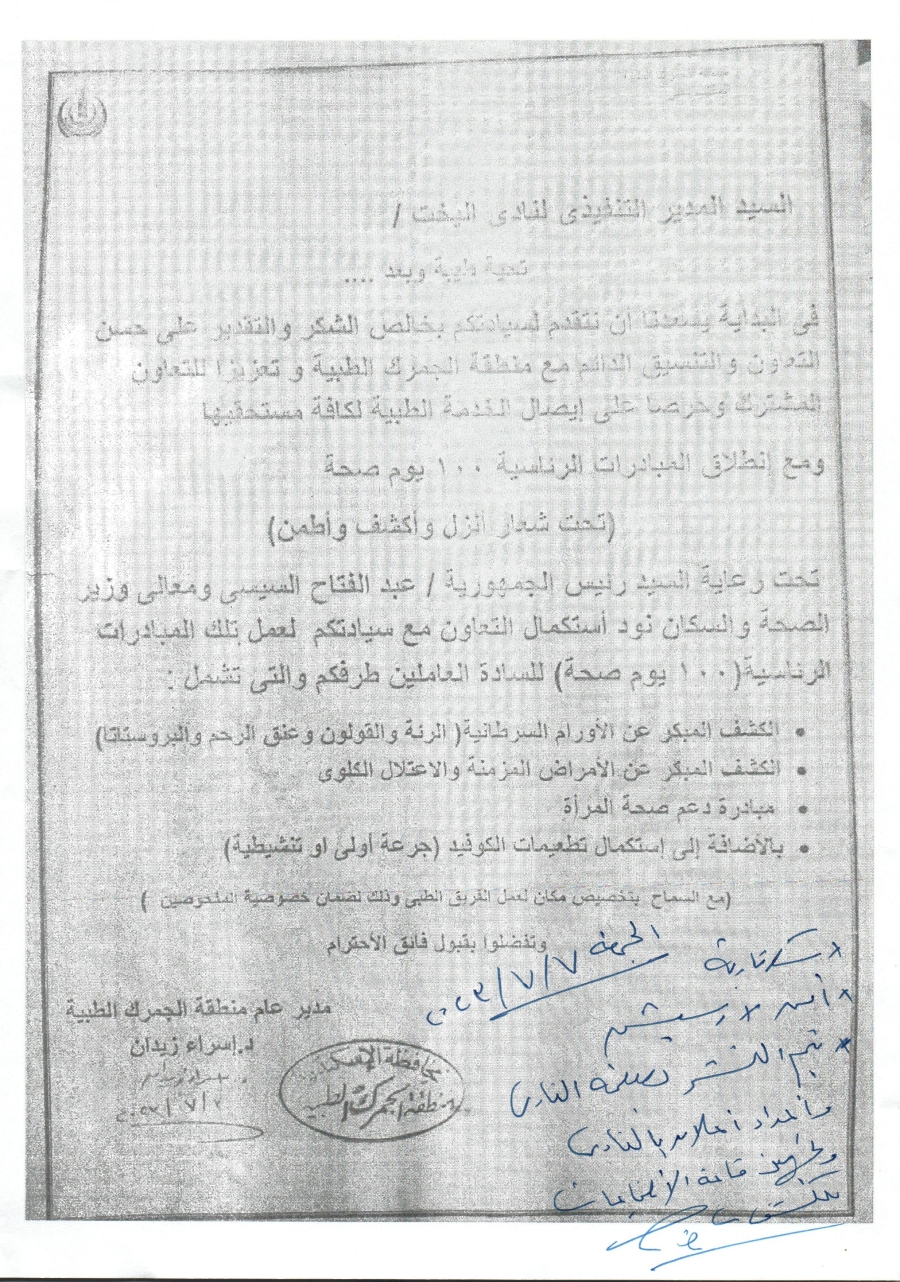 السيد المدير التنفيذى لنادى اليخت /
تحية طيبة وبعد ....
فى البداية يسعدنا ان نتقدم لسيادتكم بخالص الشكر والتقدير على حسن
التعاون والتنسيق الدائم مع منطقة الجمرك الطبية و تعزيزا للتعاون
المشترك وحرصا على إيصال الخدمة الطبية لكافة مستحقيها
ومع إنطلاق المبادرات الرئاسية ١٠٠ يوم صحة
(تحت شعار انزل وأكشف وأطمن)
تحت رعاية السيد رئيس الجمهورية / عبد الفتاح السيسى ومعالى وزير
الصحة والسكان نود أستكمال التعاون مع سيادتكم لعمل بتلك المبادرات
الرئاسية(١٠٠ يوم صحة) للسادة العاملين طرفكم والتى تشمل :
• الكشف المبكر عن الأورام السرطانية( الرئة والقولون وعنق الرحم والبروستاتا)
• الكشف المبكر عن الأمراض المزمنة والاعتلال الكلوى
• مبادرة دعم صحة المرأة
• بالأضافة إلى إستكمال تطعيمات الكوفيد (جرعة أولى او تنشيطية)
(مع السماح بتخصيص مكان لعمل الفريق الطبى وذلك لضمان خصوصية المفحوصين )
وتفضلوا بقبول فائق الأحترام
مدير عام منطقة الجمرك الطبية
د.إسراء زيدان
محافظة الإسكندرية
منطقة الجمرك الطبية
الجمعة ٢٠٢٣/٧/٧
* سكرتارية
* أمن
* يتم النشر بصفحة النادى
وإعداد إعلان بالنادى
وتجهيز قاعة الإجتماعات